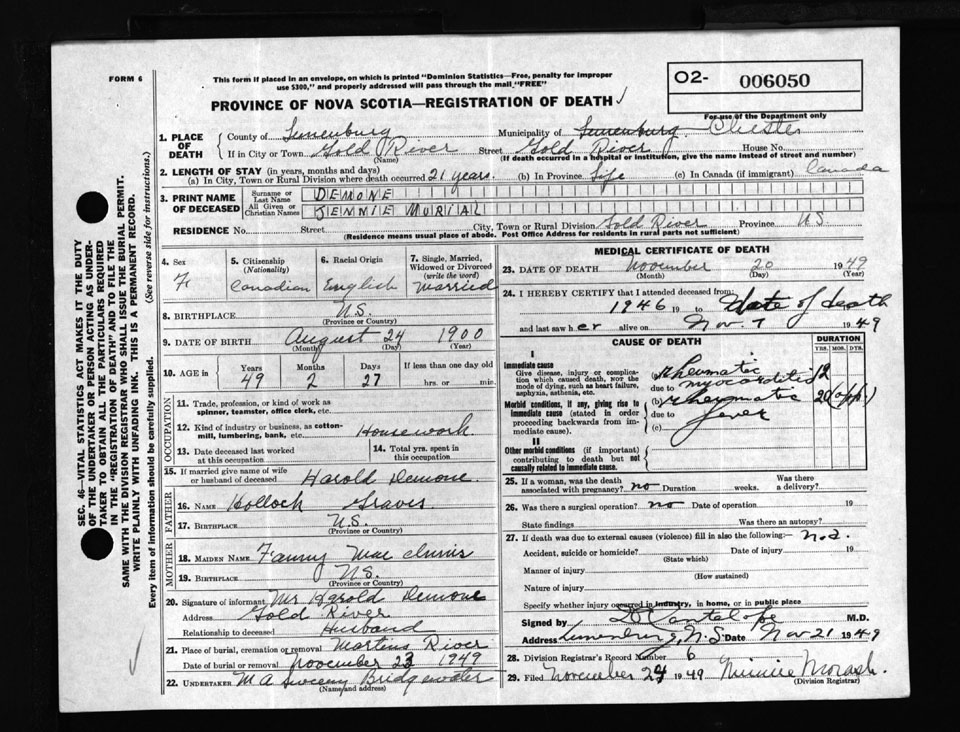 FORM 6
This form if placed in an envelope, on which is printed "Dominion Statistics—Free, penalty for improper
use $300," and properly addressed will pass through the mail "FREE"
O2- 006050
For use of the Department only
PROVINCE OF NOVA SCOTIA—REGISTRATION OF DEATH
1. PLACE OF DEATH
County of Lunenburg Municipality of Lunenburg Chester
If in City or Town Gold River (Name) Street Gold River House No.
(If death occurred in a hospital or institution, give the name instead of street and number)
2. LENGTH OF STAY (in years, months and days)
(a) In City, Town or Rural Division where death occurred 21 years. (b) In Province Life (c) In Canada (if immigrant) Canada
3. PRINT NAME OF DECEASED
Surname or Last Name DEMONE
All Given or Christian Names JENNIE MURIAL
RESIDENCE No. Street City, Town or Rural Division Gold River Province N.S
(Residence means usual place of abode. Post Office Address for residents in rural parts not sufficient)
4. Sex F
5. Citizenship (Nationality) Canadian
6. Racial Origin English
7. Single, Married, Widowed or Divorced (write the word) Married
8. BIRTHPLACE N.S.
(Province or Country)
9. DATE OF BIRTH August 24 1900
(Month) (Day) (Year)
10. AGE in Years 49 Months 2 Days 27 If less than one day old hrs. or min.
OCCUPATION
11. Trade, profession, or kind of work as spinner, teamster, office clerk, etc.
12. Kind of industry or business, as cotton-mill, lumbering, bank, etc. Housework
13. Date deceased last worked at this occupation
14. Total yrs. spent in this occupation
15. If married give name of wife or husband of deceased Harold Demone.
FATHER
16. NAME Hollock Graves
17. BIRTHPLACE N.S.
(Province or Country)
MOTHER
18. MAIDEN NAME Fanny Mac Innis
19. BIRTHPLACE N.S.
(Province or Country)
20. Signature of informant Mr Harold Demone
Address Gold River
Relationship to deceased Husband
21. Place of burial, cremation or removal Martins River
Date of burial or removal November 23 1949
22. UNDERTAKER M A Sweeny Bridgewater
(Name and address)
MEDICAL CERTIFICATE OF DEATH
23. DATE OF DEATH November 20 1949
(Month) (Day) (Year)
24. I HEREBY CERTIFY that I attended deceased from:
1946 19 to date of death
and last saw her alive on Nov. 7 1949
CAUSE OF DEATH
DURATION
YRS. MOS. DYS.
I
Immediate cause
Give disease, injury or complication which caused death, NOT the mode of dying, such as heart failure, asphyxia, asthenia, etc.
(a) Rheumatic myocarditis 12
due to
Morbid conditions, if any, giving rise to immediate cause (stated in order proceeding backwards from immediate cause).
(b) Rheumatic fever 20 (app)
due to
(c)
II
Other morbid conditions (if important) contributing to death but not causally related to immediate cause.
25. If a woman, was the death associated with pregnancy? no Duration weeks. Was there a delivery?
26. Was there a surgical operation? no Date of operation 19
State findings Was there an autopsy?
27. If death was due to external causes (violence) fill in also the following:— n.a.
Accident, suicide or homicide? Date of injury 19
(State which)
Manner of injury
(How sustained)
Nature of injury
Specify whether injury occurred in industry, in home, or in public place
Signed by Cantelope M.D.
Address Lunenburg, N.S. Date Nov 21 1949
28. Division Registrar's Record Number 6
29. Filed November 24 1949 Minnie Morash
(Division Registrar)
SEC. 46—VITAL STATISTICS ACT MAKES IT THE DUTY
OF THE UNDERTAKER OR PERSON ACTING AS UNDER-
TAKER TO OBTAIN ALL THE PARTICULARS REQUIRED
IN THE "REGISTRATION OF DEATH" AND TO FILE THE
SAME WITH THE DIVISION REGISTRAR WHO SHALL ISSUE THE BURIAL PERMIT.
WRITE PLAINLY WITH UNFADING INK. THIS IS A PERMANENT RECORD.
Every item of information should be carefully supplied. (See reverse side for instructions.)